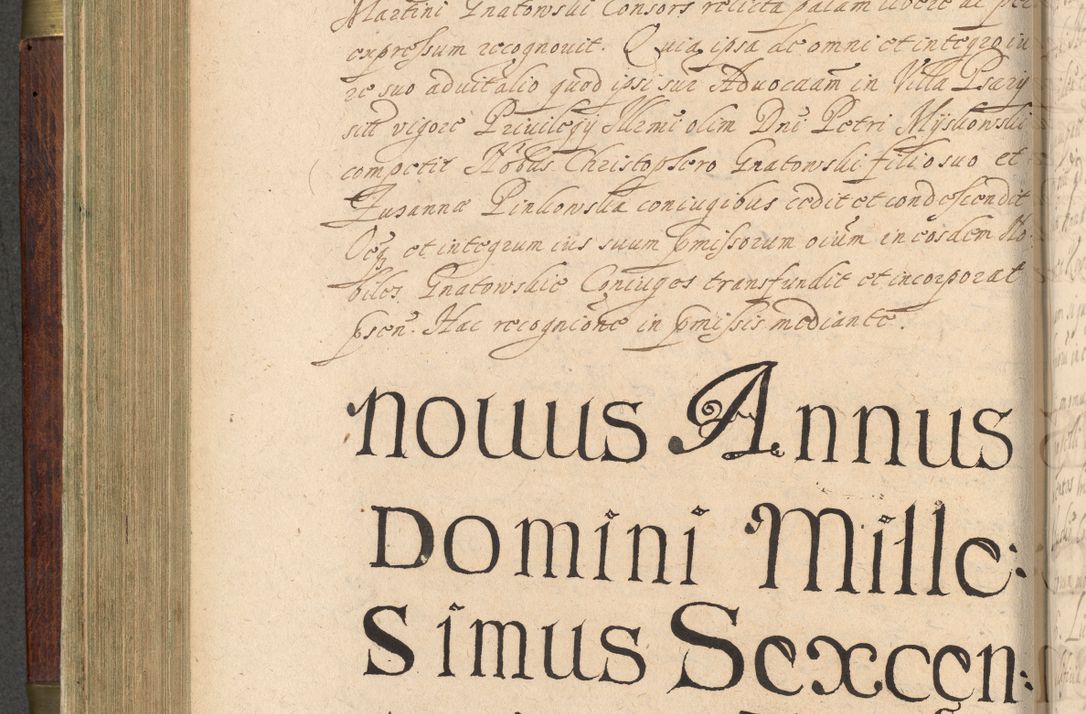 Martini Gnatowski Consors relicta palam libere ac per
expressum recognovit. Quia ipsa de omni et integro iu
re suo advitalio quod ipsi sup Advocatiam in Villa Psary
siti vigore Privilegy Illrmi olim Dni Petri Myskowski
competit Nobus Christophero Gnatowski filio suo et
Zuzannæ Pinkowska coniugibus cedit et condescendit
Oeq et integrum ius suum pmissorum oium in eosdem No:
biles Gnatowskie Coniuges transfundit et incorporat
psen. Hac recognicōne in pmissis mediante.
Nouus Annus
Domini Mille:
Simus Sexcen: